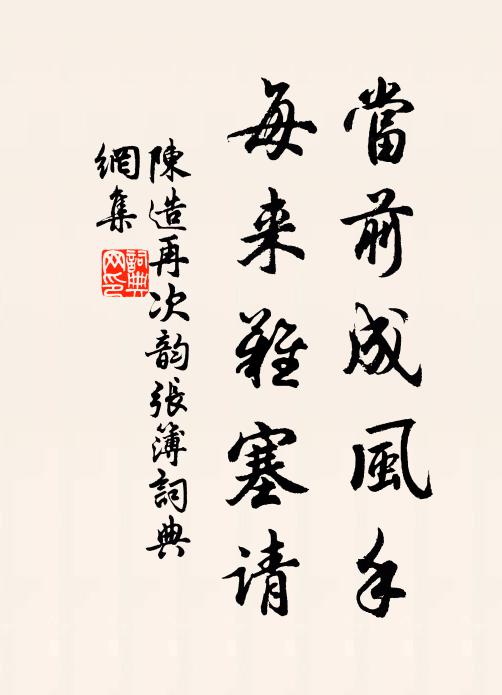 當前成風手
每来難塞请
陳造再次韵張簿詞典
網集
詞典
网印